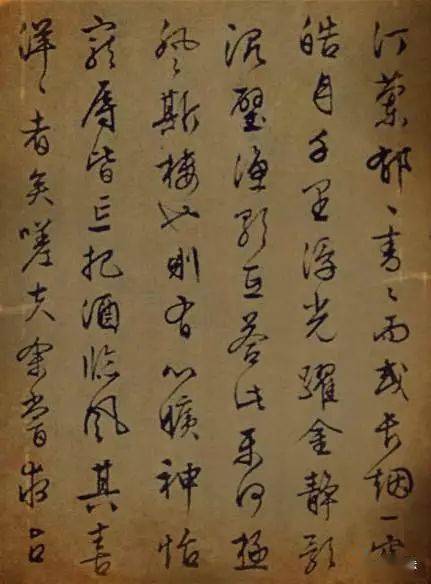 汀蘭郁々青々而或長烟一空
皓月千里浮光躍金静影
沉璧漁歌互答此樂何極
登斯楼也則有心曠神怡
寵辱皆忘把酒臨風其喜
洋々者矣嗟夫余嘗求古